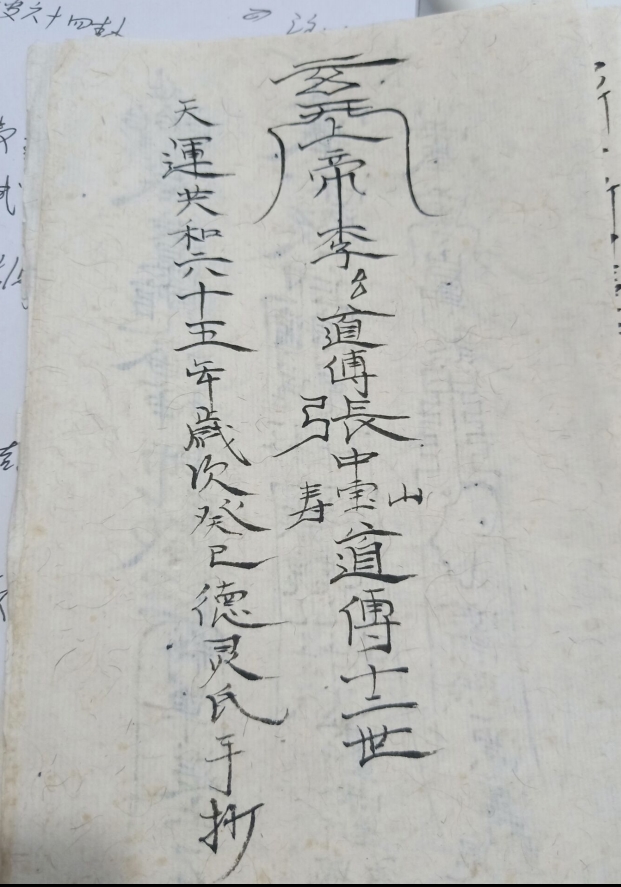 玄天上帝李公道傳張中寶道傳十二世
山
寿
天運共和六十五年歲次癸巳德灵氏手抄
六十四卦